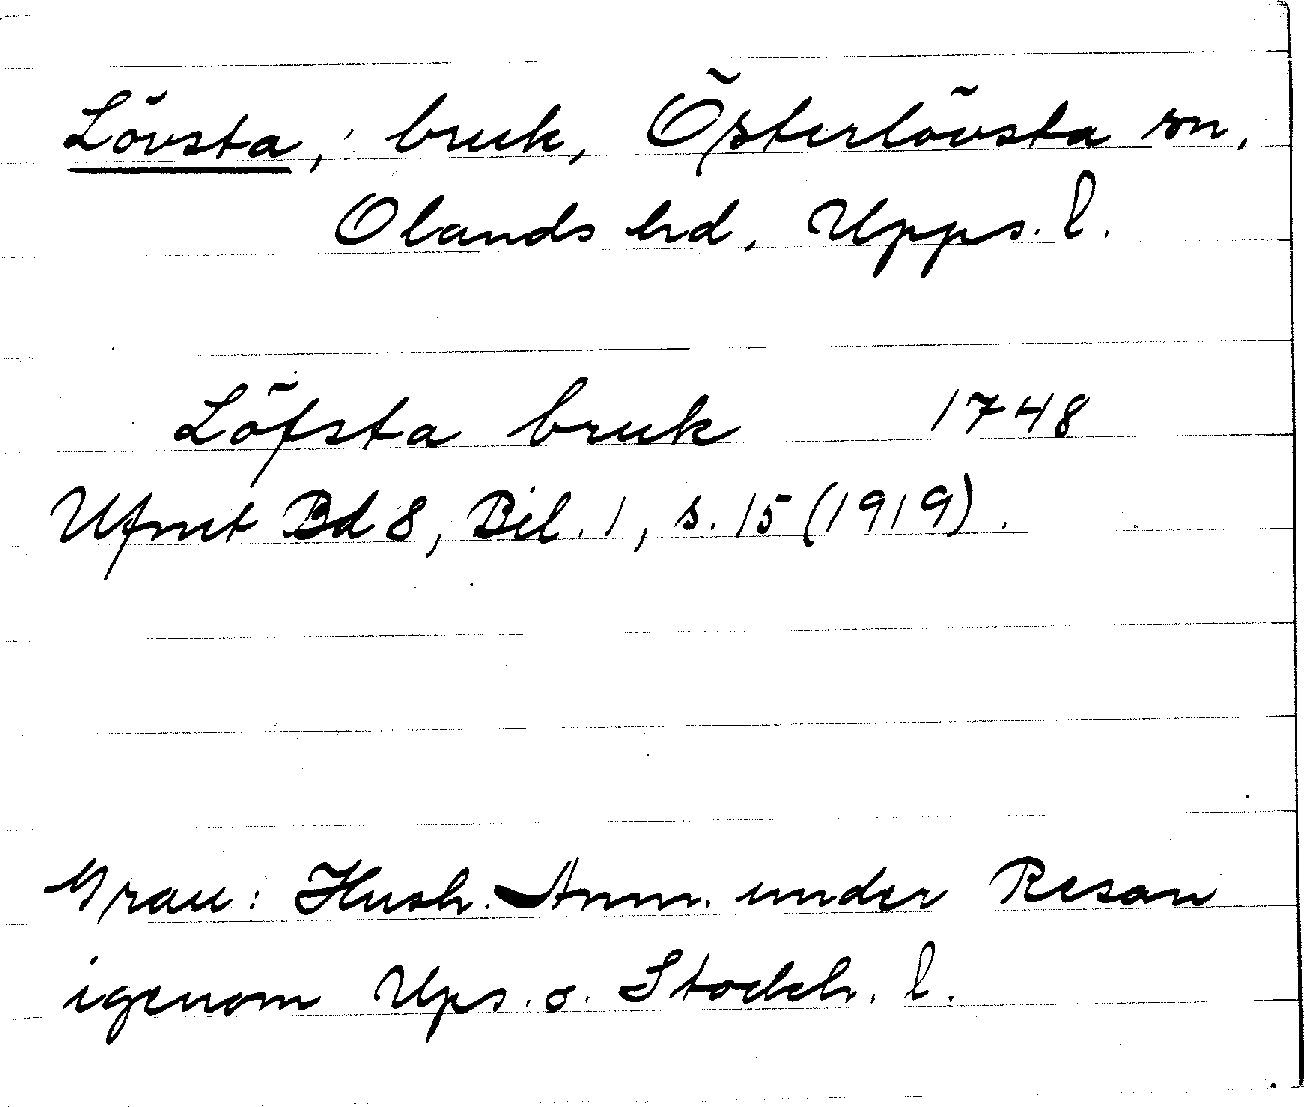 Lövsta, bruk, Österlövsta sn,
Olands hd, Upps. l.
Löfsta bruk 1748
Ufmt Bd 8, Bil. 1, s. 15 (1919).
Grau: Hush. Anm. under Resan
igenom Ups. o. Stockh. l.